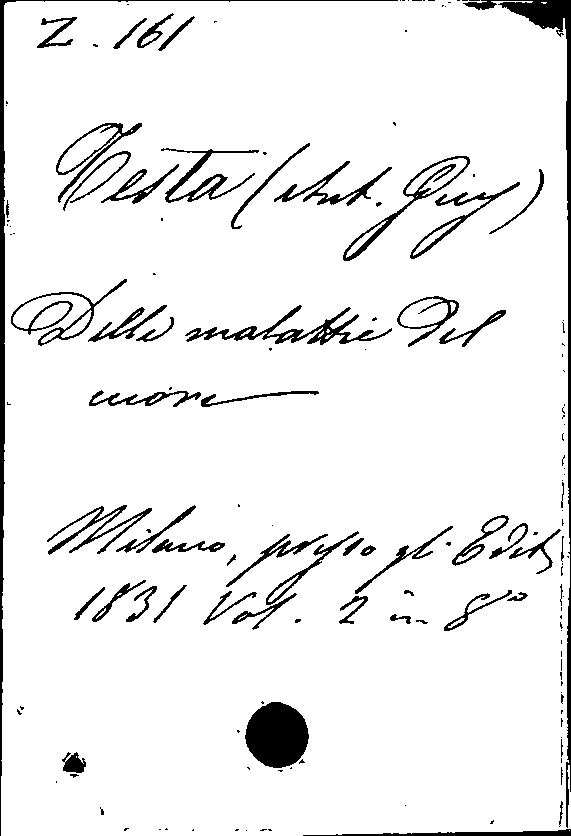 Z. 161
Testa (Ant. Gius)
Delle malattie del
cuore
Milano, presso gl. Edit
1831 Vol. 2 in 8º